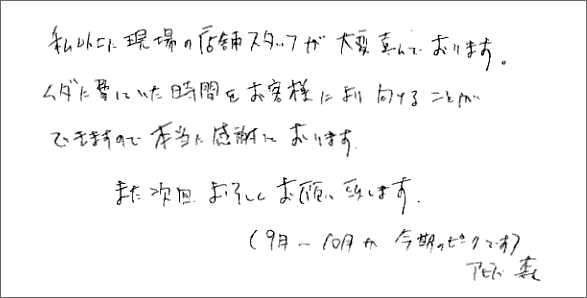 私以上に現場の店舗スタッフが大変喜んでおります。
ムダに費していた時間をお客様により向けることが
できますので本当に感謝しております。
また次回よろしくお願い致します。
(9月~10月が今期のピークです)